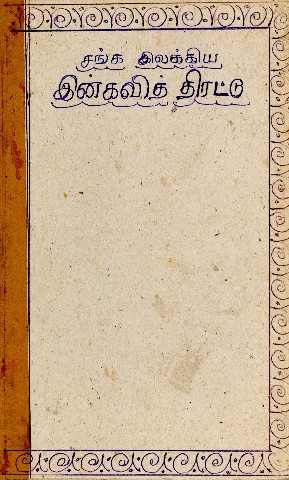 சங்க இலக்கிய
இன்கவித் திரட்டு